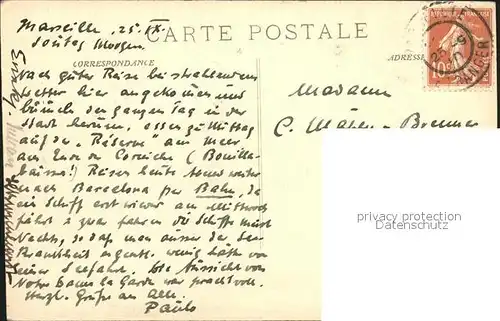 CARTE POSTALE
CORRESPONDANCE
ADRESSE
RÉPUBLIQUE FRANÇAISE
Marseille, 25. IX.
Sontag Morgen.
Nach guter Reise bei strahlendem
Wetter hier angekommen und
bummeln den ganzen Tag in der
Stadt herum, essen zu Mittag
auf der "Réserve" am Meer
am Ende der Corniche (Bouilla-
baisse!) Reisen heute Abend weiter
nach Barcelona per Bahn, da
ein Schiff erst wieder am Mittwoch
fährt & zwar fahren die Schiffe meist
Nachts, so dass man ausser der See-
krankheit eigentl. wenig hätte von
einer Seefahrt. Die Aussicht von
Notre Dame la Garde war prachtvoll.
Herzl. Grüsse an Alle.
Paulo
Madame
C.
privacy protection
watermark